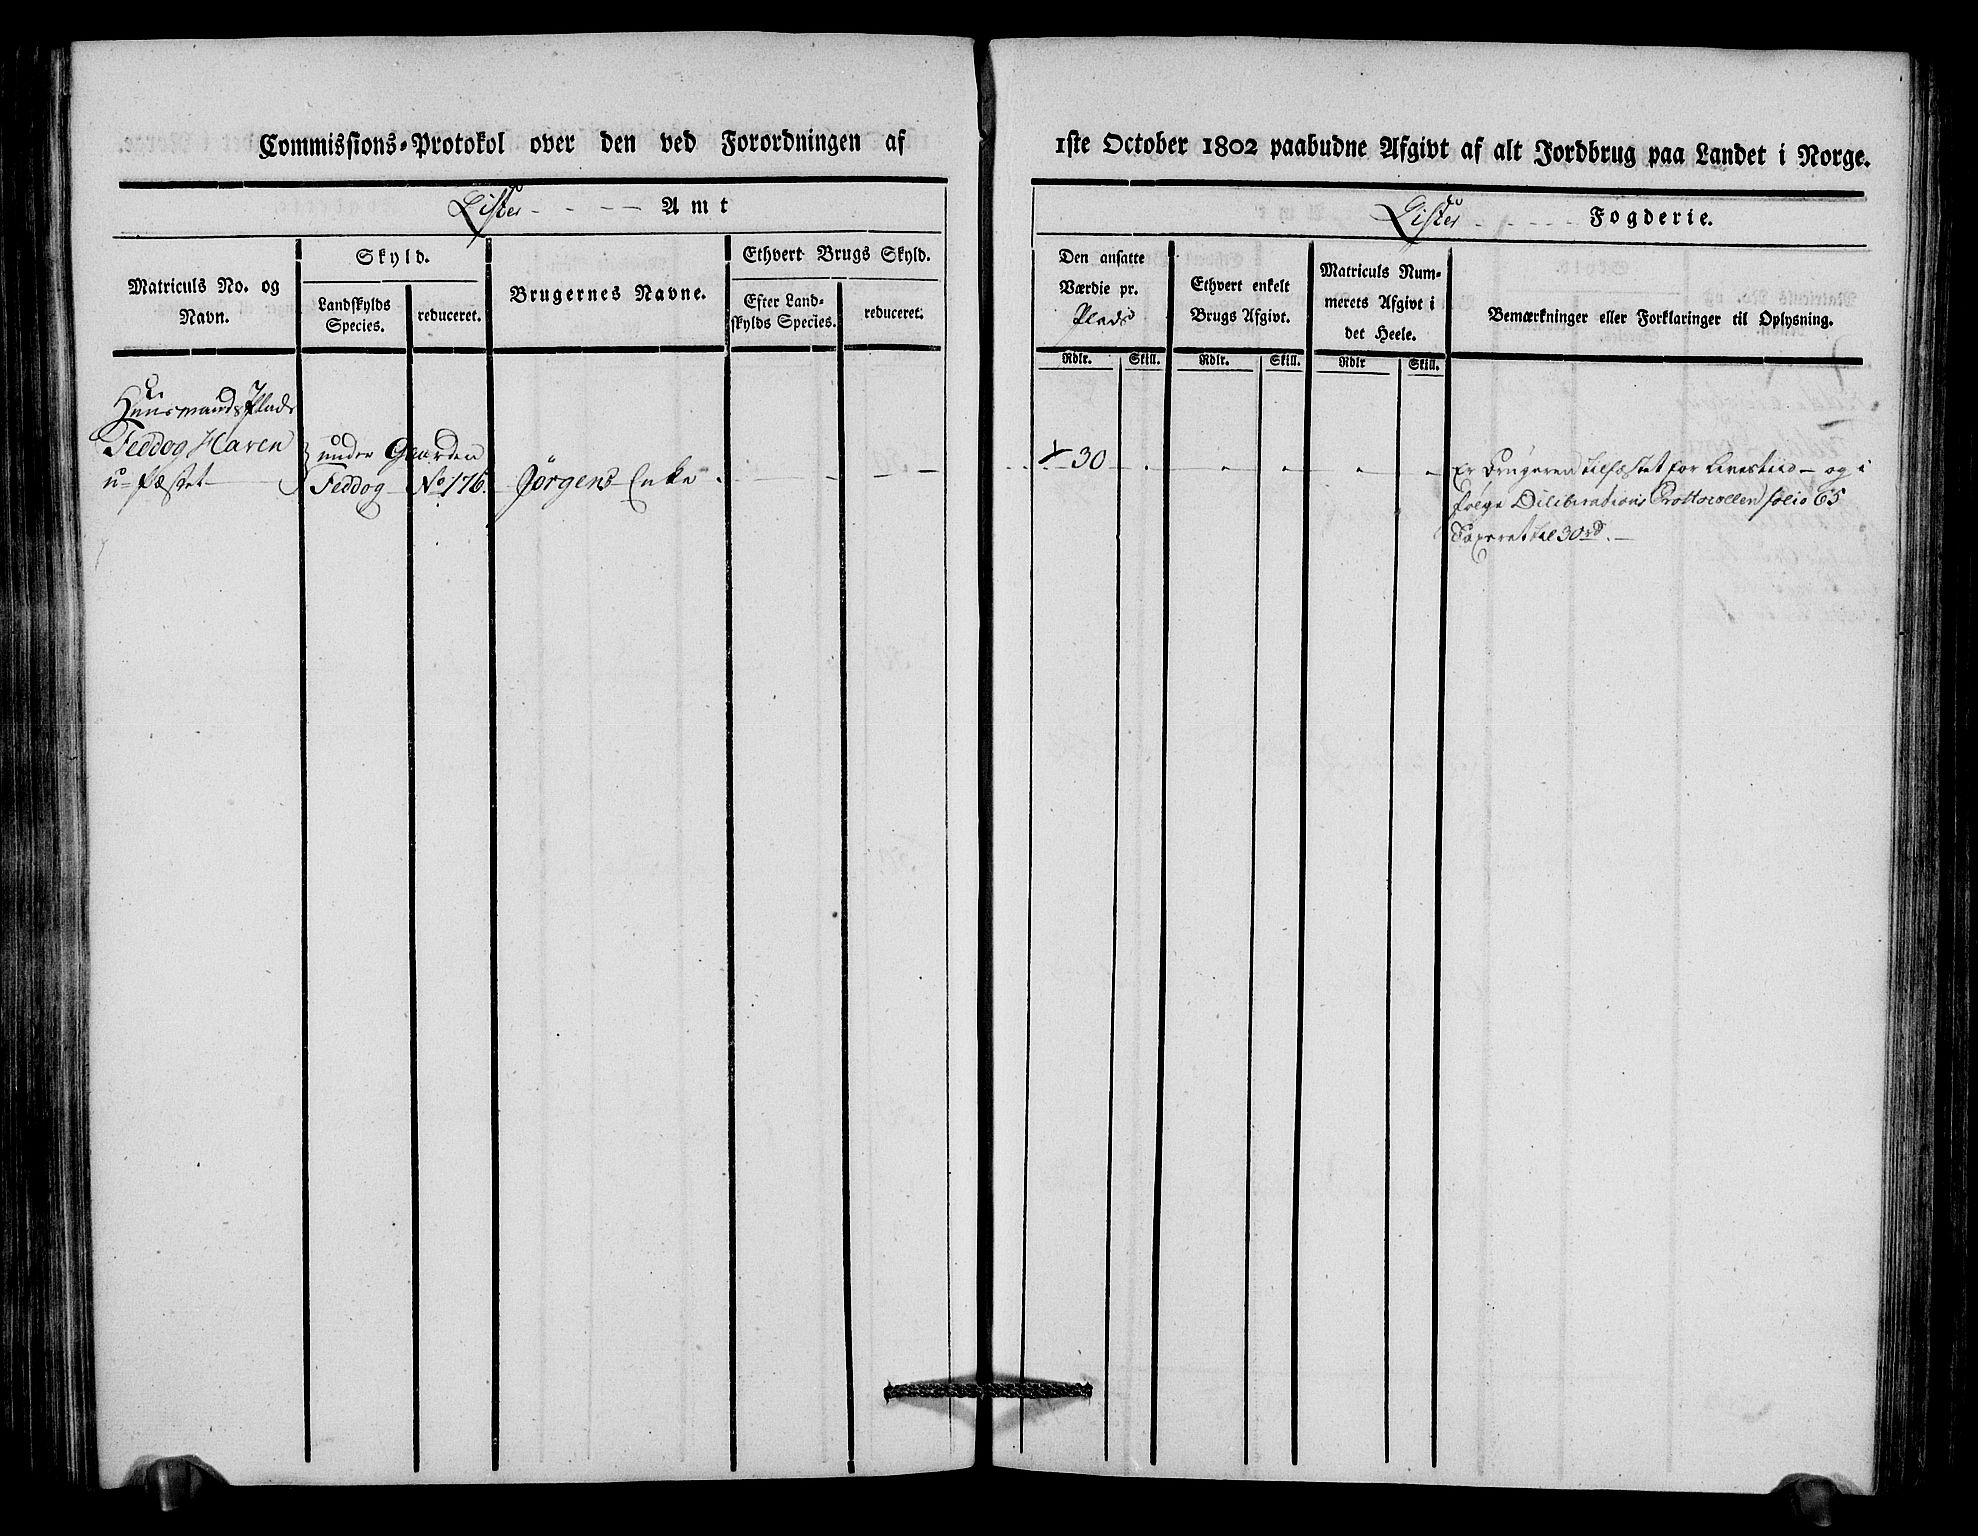 Commissions-Protokol over den ved Forordningen af
Lister Amt
Matriculs No. og
Navn.
Skyld.
Landskylds
Species.
reduceret.
Brugernes Navne.
Ethvert Brugs Skyld.
Efter Land-
skylds Species.
reduceret.
Huusmands Plads
Feddog Haren
u-fæstet
under Gaarden
Feddog No 176.
Jørgens Enke
1ste October 1802 paabudne Afgivt af alt Jordbrug paa Landet i Norge.
Lister Fogderie.
Den ansatte
Værdie pr.
Plads
Rdlr. Skill.
Ethvert enkelt
Brugs Afgivt.
Rdlr. Skill.
Matriculs Num-
merets Afgivt i
det Heele.
Rdlr Skill.
Bemærkninger eller Forklaringer til Oplysning.
30
Er Brugeren tilfæstet for Livestiid - og i
følge Deliberations Prottocollen folio 65
Taxeret til 30 rd.